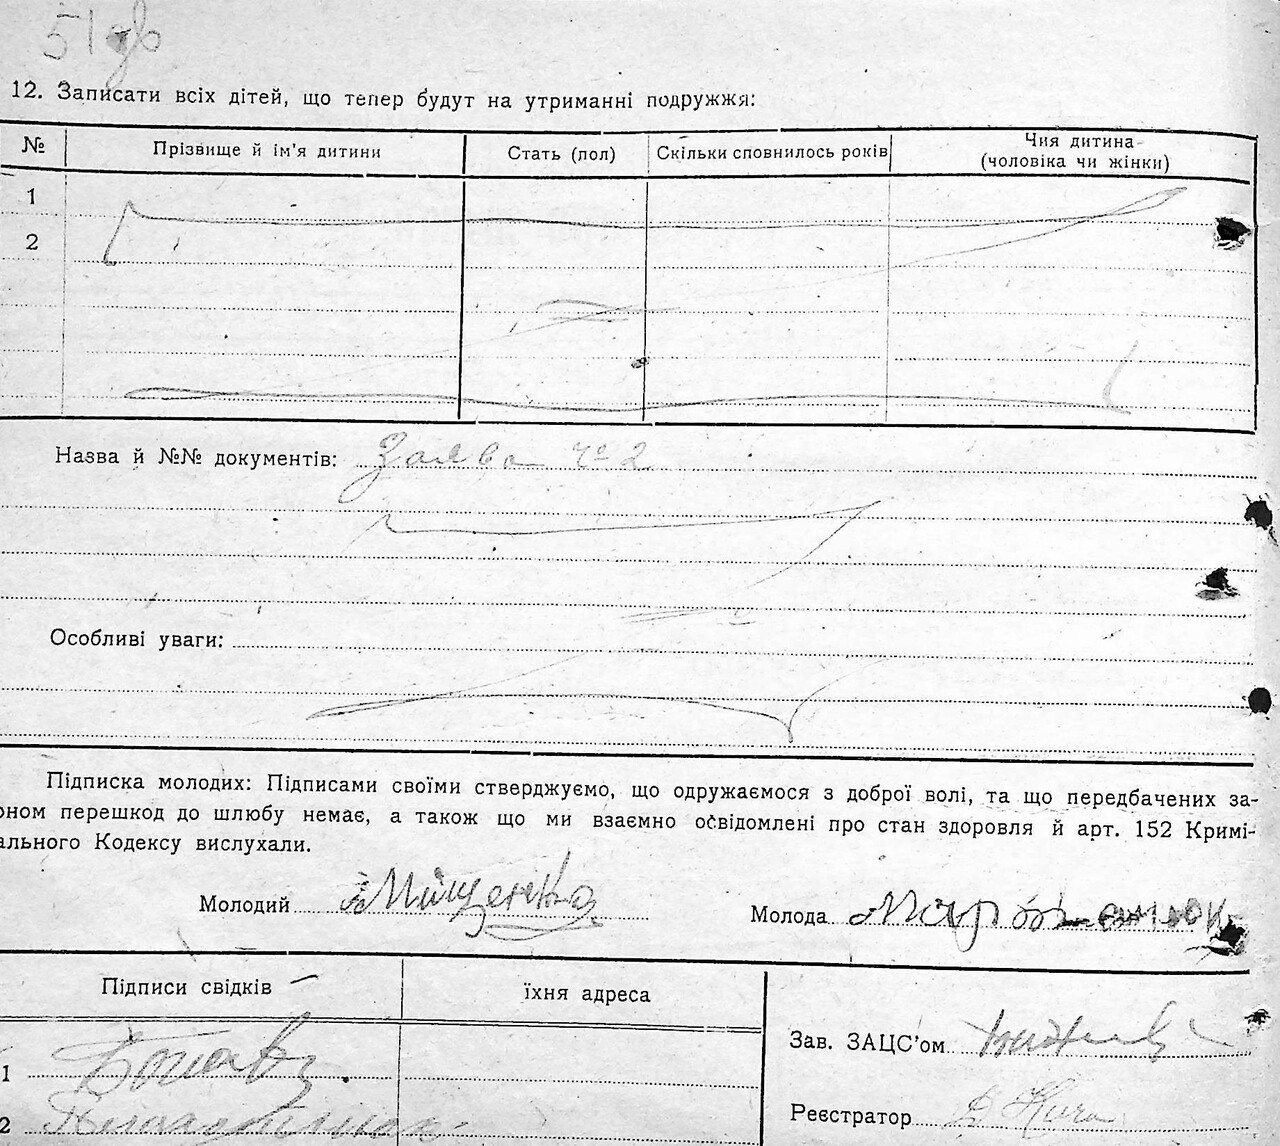 51 зв
12. Записати всіх дітей, що тепер будут на утриманні подружжя:
№ Прізвище й ім'я дитини Стать (пол) Скільки сповнилось років Чия дитина (чоловіка чи жінки)
1
2
Назва й №№ документів: Заява № 2
Особливі уваги:
Підписка молодих: Підписами своїми стверджуємо, що одружаємося з доброї волі, та що передбачених за-
оном перешкод до шлюбу немає, а також що ми взаємно освідомлені про стан здоровля й арт. 152 Кримі-
ального Кодексу вислухали.
Молодий Міщенко Молода
Підписи свідків їхня адреса
Зав. ЗАЦС'ом
1
Реєстратор
2